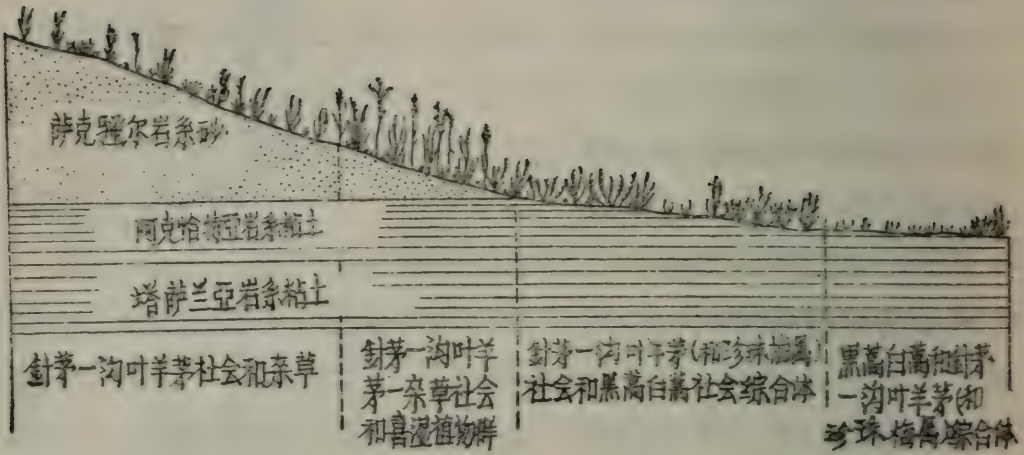 萨克骚尔岩系砂
阿克哈特亚岩系粘土
塔萨兰亚岩系粘土
針茅一沟叶羊茅社会和杂草
針茅一沟叶羊
茅一杂草社会
和喜湿植物群
針茅一沟叶羊茅(和珍珠梅属)
社会和黑蒿白蒿社会综合体
黑蒿白蒿和針茅
一沟叶羊茅(和
珍珠梅属)综合体